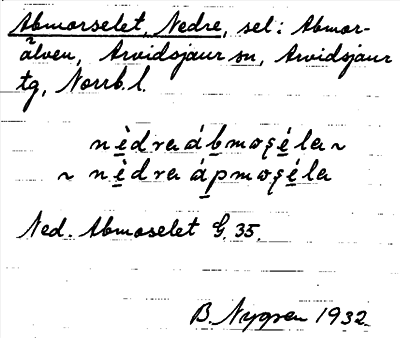 Abmorselet, Nedre, sel i Abmor-
älven, Arvidsjaur sn, Arvidsjaur
tg, Norrb. l.
nèdra ábmoșéla ~
~ nèdra ápmoșéla
Ned. Abmoselet G. 35.
B. Nygren 1932.